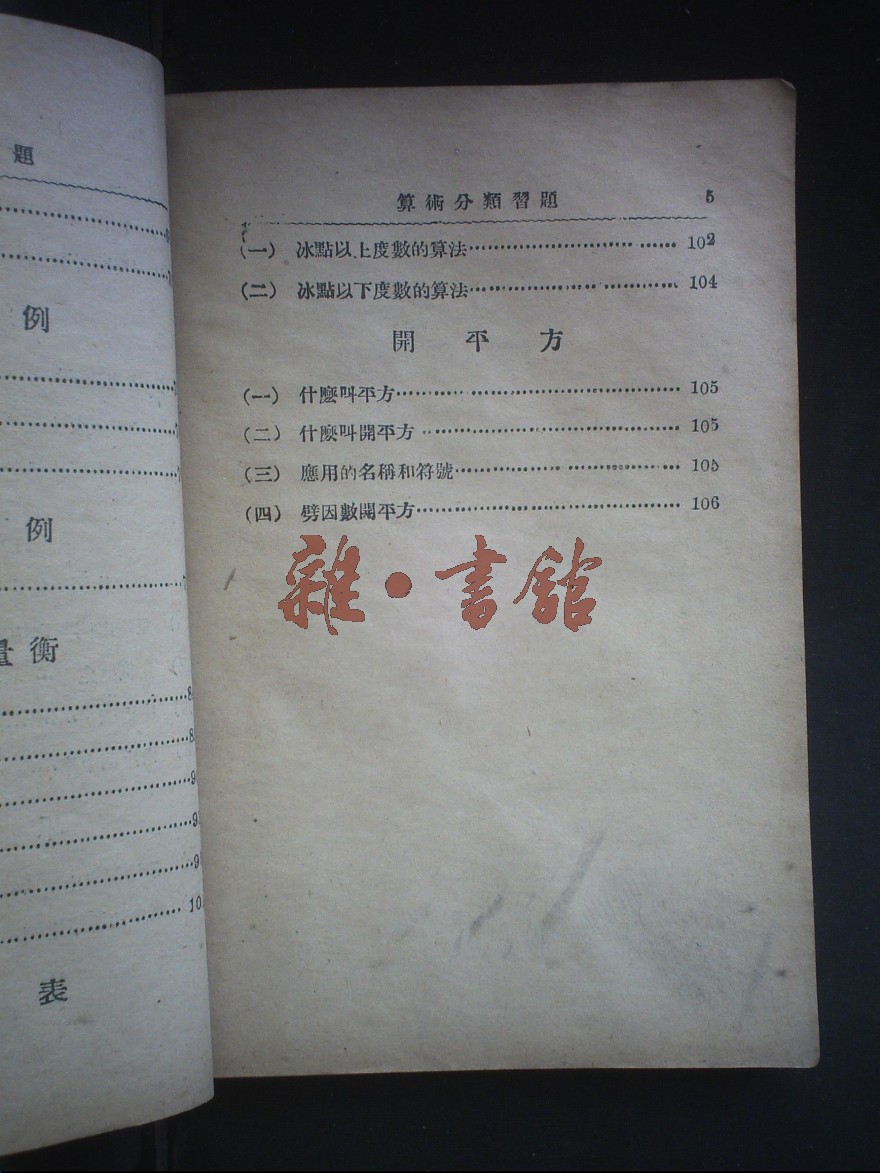 題
例
例
量衡
10
表
算術分類習題 5
(一) 冰點以上度數的算法 102
(二) 冰點以下度數的算法 104
開平方
(一) 什麼叫平方 105
(二) 什麼叫開平方 105
(三) 應用的名稱和符號 105
(四) 劈因數開平方 106
雜·書館